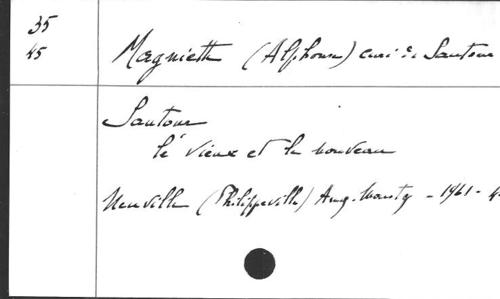 35
45 Magniette (Alphonse) curé de Sautour
Sautour
le vieux et le nouveau
Neuville (Philippeville) Aug. Mousty - 1961 - 4